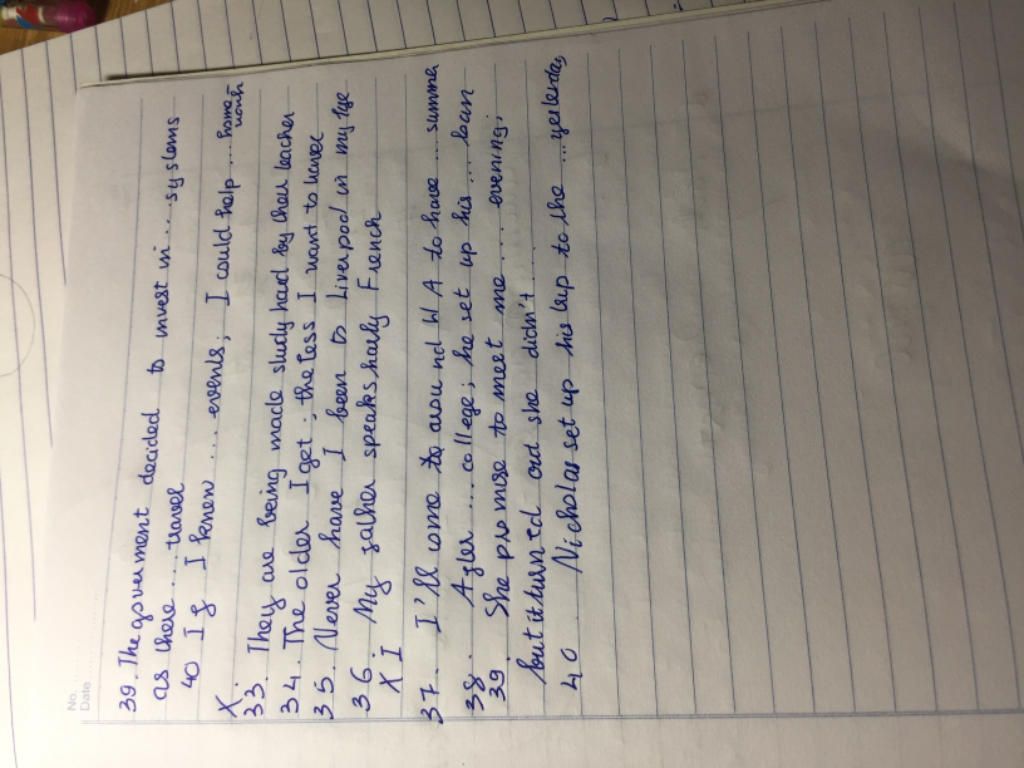 No.
Date
39. The government decided to invest in .... systems
as there .... travel
40 If I knew .... events; I could help ... home
work
X.
33. They are being made study hard by their teacher
34. The older I get; the less I want to
35. Never have I been to Liverpool in my life
36 My father speaks harly French
X I
37. I'll come to around WA to have ... summe
38. After ... college; he set up his ... born
39. She promise to meet me .... evening;
but it turned out she didn't ....
40. Nicholas set up his to the ... yesterday